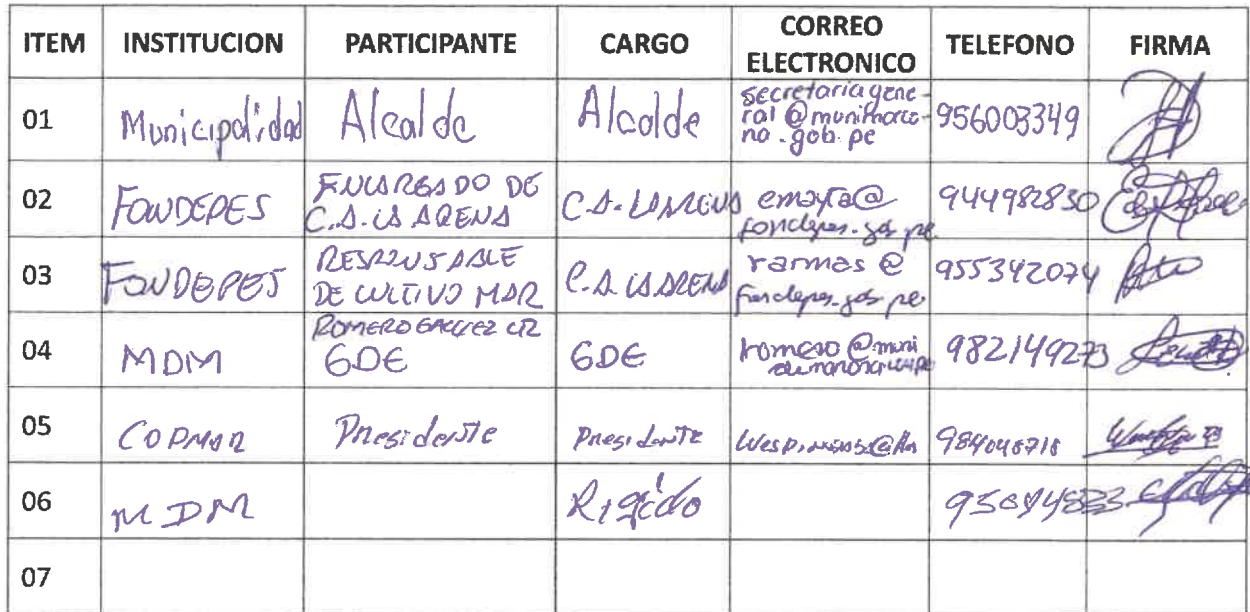 ITEM INSTITUCION PARTICIPANTE CARGO CORREO ELECTRONICO TELEFONO FIRMA
01 Municipalidad Alcalde Alcalde secretariagene-
ral@munimarco-
na.gob.pe 956003349
02 FONDEPES ENCARGADO DE
C.A. LA ARENA C.A. LA ARENA emayta@
fondepes.gob.pe 944982830
03 FONDEPES RESPONSABLE
DE CULTIVO MAR C.A. LA ARENA rarmas@
fondepes.gob.pe 955342074
04 MDM ROMERO
GDE GDE romero@muni 982149273
05 COPMAR Presidente Presidente 984040718
06 MDM Regido
07